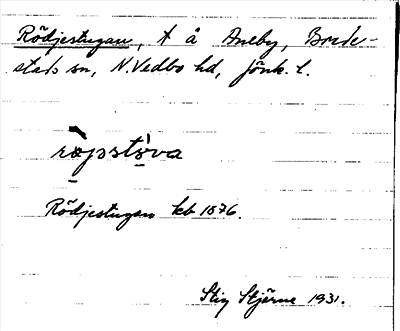 Rödjestugan, t å Aneby, Brede-
stads sn, N. Vedbo hd, Jönk. l.
rø̀jpstøva
Rödjestugan kb 1876.
Stig Stjärne 1931.